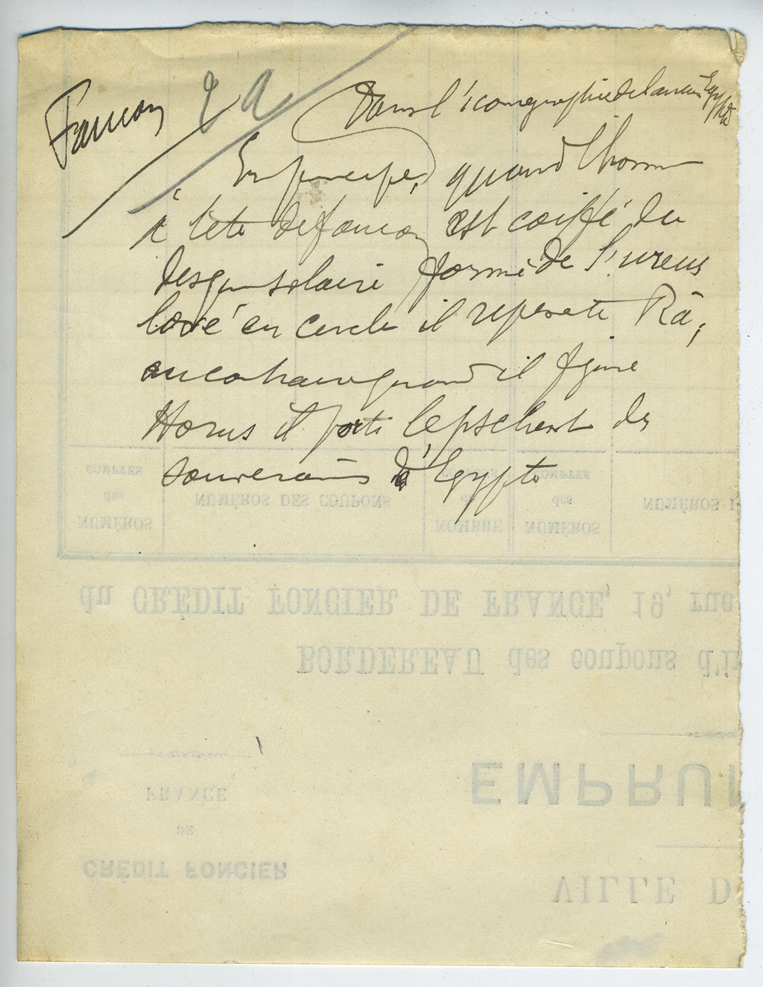 Faucon
Dans l'iconographie de l'ancienne Egypte
En principe, quand l'homme
à tête de faucon est coiffé du
disque solaire formé de l'uraeus
lové en cercle il represente Râ,
au contraire quand il figure
Horus il porte le pschent des
souverains d'Egypte
COUPURES
des
NUMÉROS
NUMÉROS DES COUPONS
NOMBRE
des
NUMÉROS
NUMÉROS
du CRÉDIT FONCIER DE FRANCE, 19, rue
BORDEREAU des coupons
EMPRUN
FRANCE
DE
CRÉDIT FONCIER
VILLE D